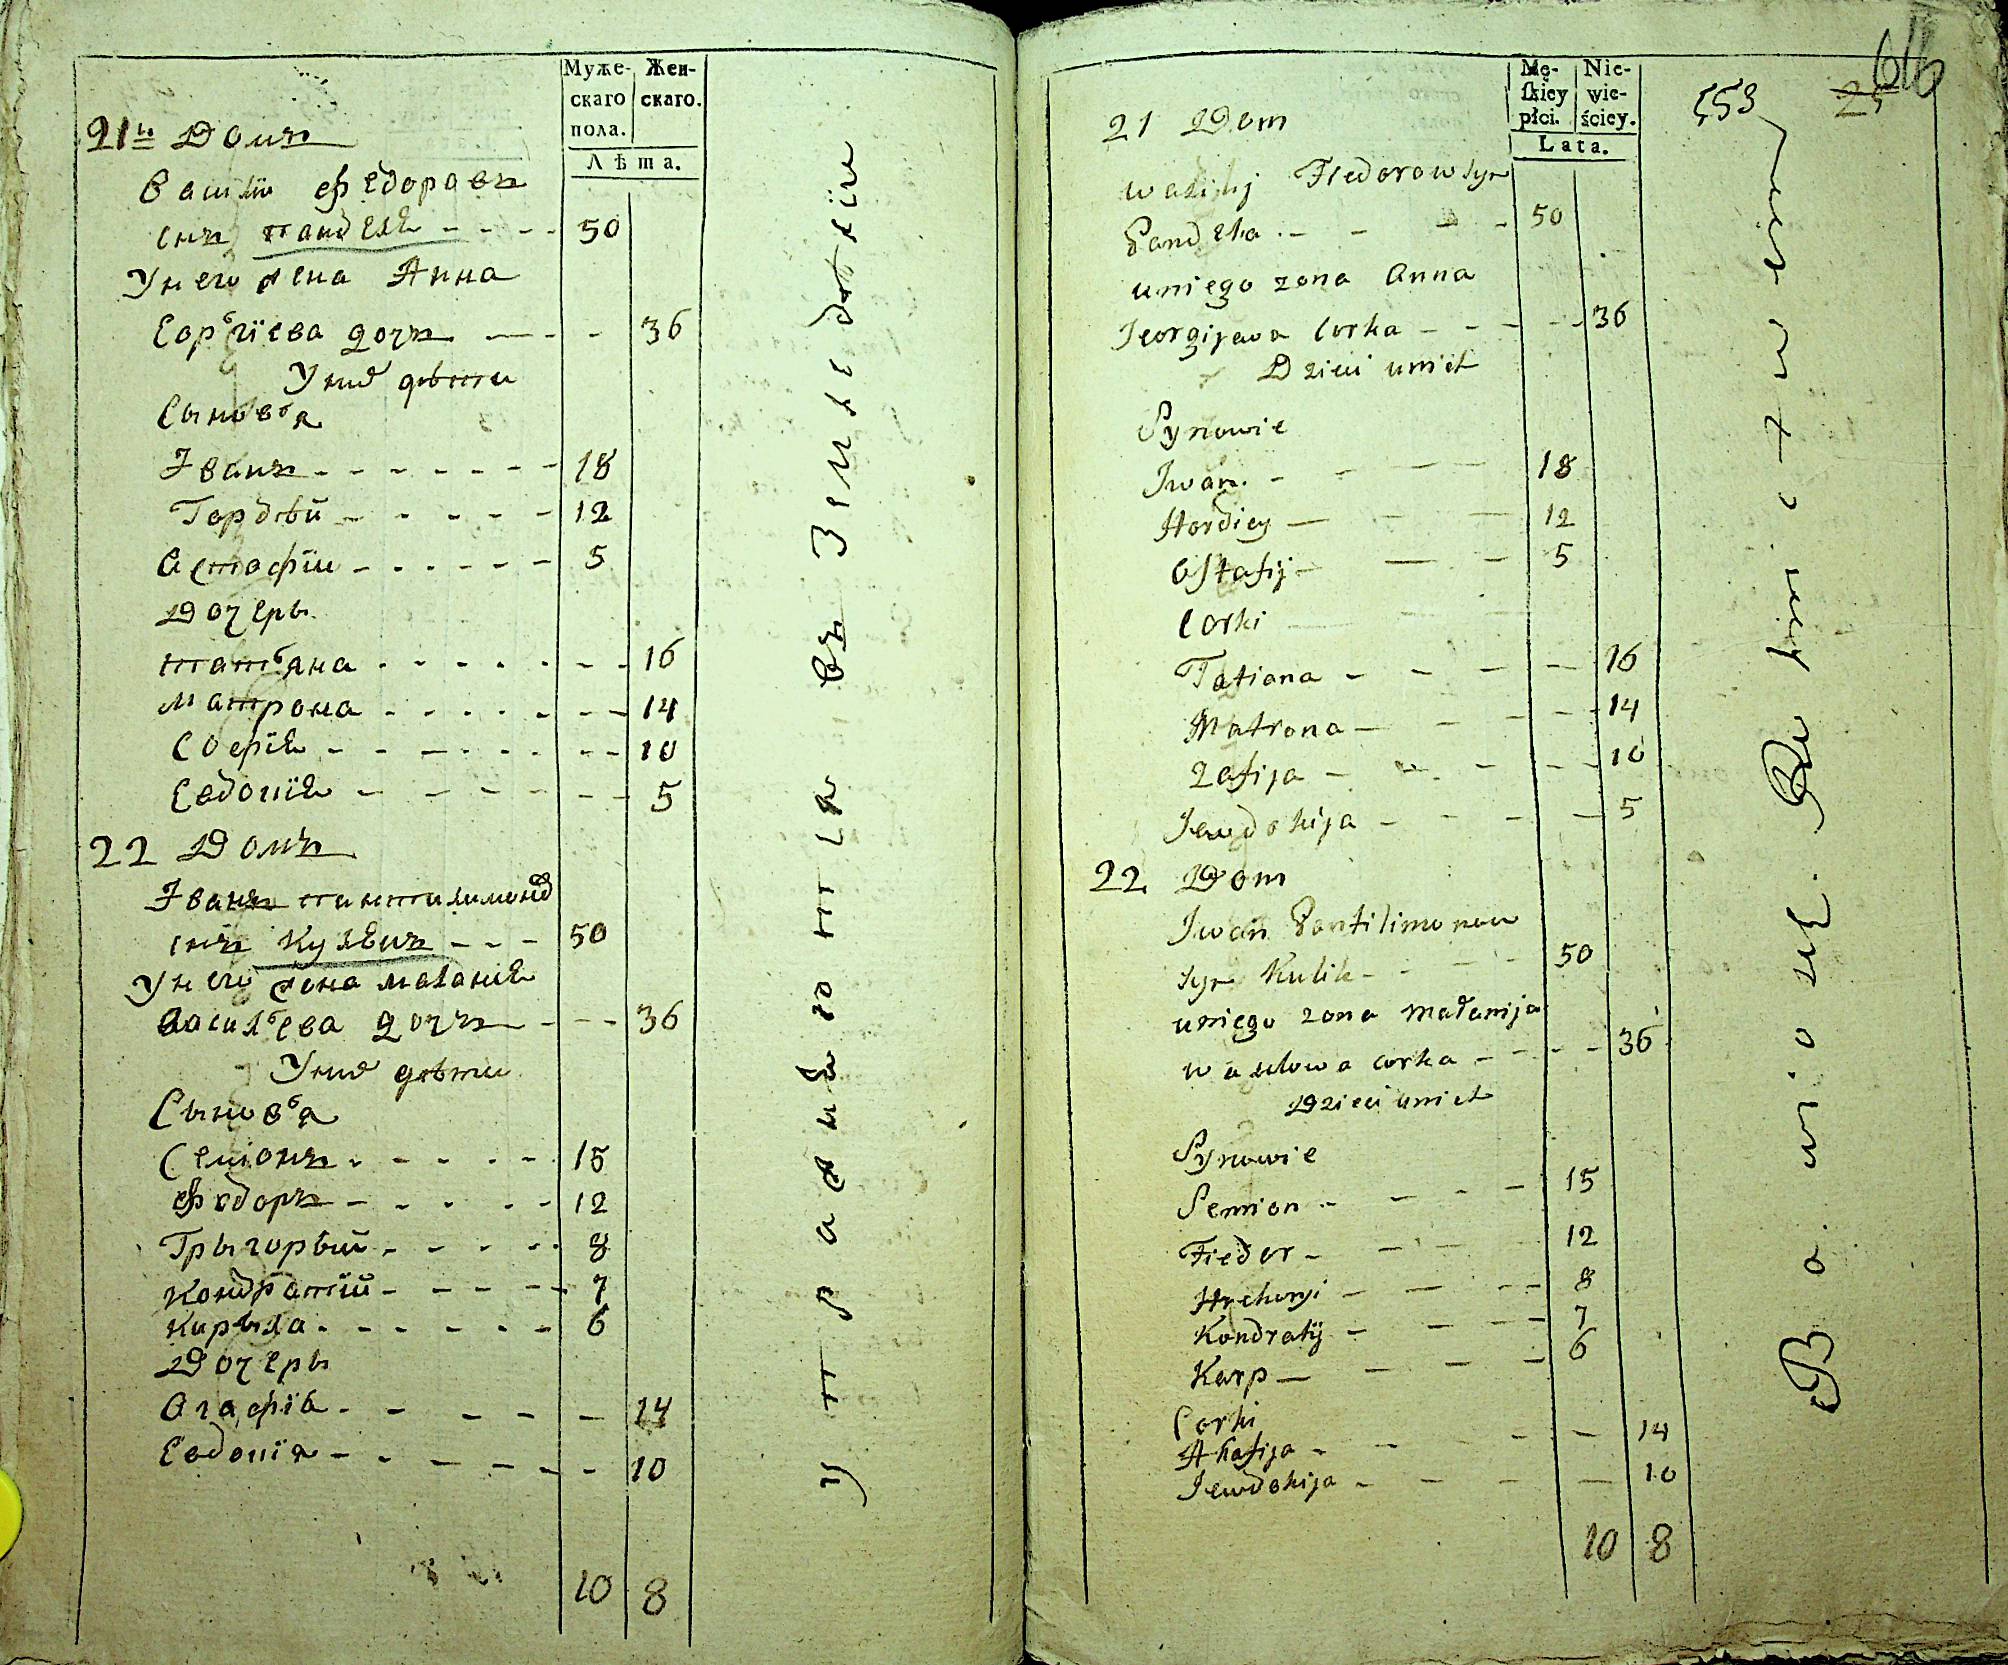 Муже-
скаго
пола.
Жен-
скаго.
Лѣта.
21й Домъ
Василій Федоровъ
снъ Пандека - - - 50
У него жена Анна
Еоргіева дочъ - - - 36
У них дѣти
Сыновья
Іванъ - - - 18
Гордѣй - - - 12
Астафій - - - 5
Дочеры
Татьяна - - - 16
Матрона - - - 14
Софія - - - 10
Евдокія - - - 5
22 Домъ
Іванъ Пантилимонов
снъ Куликъ - - - 50
У него жена Маланія
Васильева дочъ - - - 36
У них дѣти
Сыновья
Семіонъ - - - 15
Федоръ - - - 12
Грыгорый - - - 8
Кондратій - - - 7
Кирыла - - - 6
Дочеры
Агафія - - - 14
Евдокія - - - 10
10 8
Mę-
skiey
płci.
Nie-
wie-
ściey.
Lata.
553
616
21 Dom
Wasilij Fiedorow syn
Pandeka - - - 50
u niego zona Anna
Jeorgijewa Corka - - - 36
Dzieci u nich
Synowie
Iwan - - - 18
Hordiey - - - 12
Ostafij - - - 5
Corki
Tatiana - - - 16
Matrona - - - 14
Zofija - - - 10
Jewdokija - - - 5
22 Dom
Iwan Pantilimonow
syn Kulik - - - 50
u niego zona Małanija
corka - - - 36
Dzieci u nich
Synowie
Semion - - - 15
Fiedor - - - 12
Hrehoryi - - - 8
Kondratij - - - 7
Karp - - - 6
Corki
Ahafija - - - 14
Jewdokija - - - 10
10 8